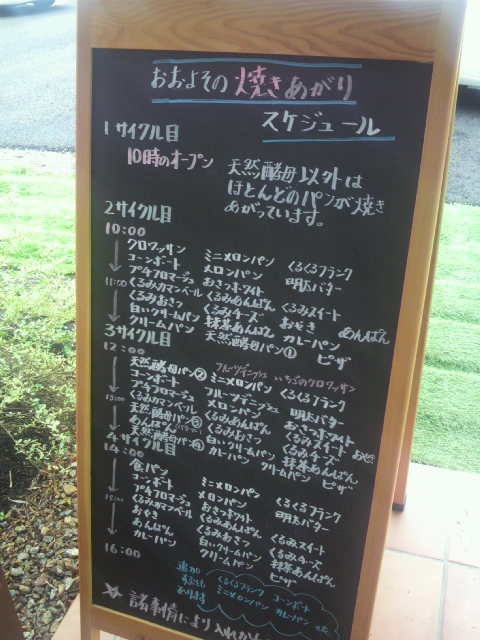 おおよその 焼きあがり
スケジュール
1サイクル目
10時のオープン
天然酵母以外は
ほとんどのパンが焼き
あがっています。
2サイクル目
10:00
クロワッサン ミニメロンパン くるくるフランク
コーンポート メロンパン 明太バター
プチフロマージュ おさつホワイト
11:00 くるみカマンベール くるみあんぱん くるみスイート
くるみおさつ くるみチーズ おやき あんぱん
白いクリームパン 抹茶あんぱん カレーパン
クリームパン 天然酵母パン① ピザ
3サイクル目
12:00
天然酵母パン② フルーツデニッシュ いちごのクロワッサン
コーンポート ミニメロンパン くるくるフランク
プチフロマージュ フルーツデニッシュ 明太バター
13:00 くるみカマンベール メロンパン おさつホワイト
天然酵母パン③ くるみあんぱん くるみスイート
あんぱん くるみおさつ くるみチーズ おやき
天然酵母パン④ 白いクリームパン 抹茶あんぱん
4サイクル目 カレーパン クリームパン ピザ
14:00
食パン ミニメロンパン くるくるフランク
コーンポート メロンパン 明太バター
プチフロマージュ おさつホワイト
15:00 くるみカマンベール くるみあんぱん くるみスイート
おやき くるみおさつ くるみチーズ
あんぱん 白いクリームパン 抹茶あんぱん
カレーパン クリームパン ピザ
16:00
追加 くるくるフランク コーンポート
あります ミニメロンパン カレーパン etc.
諸事情により